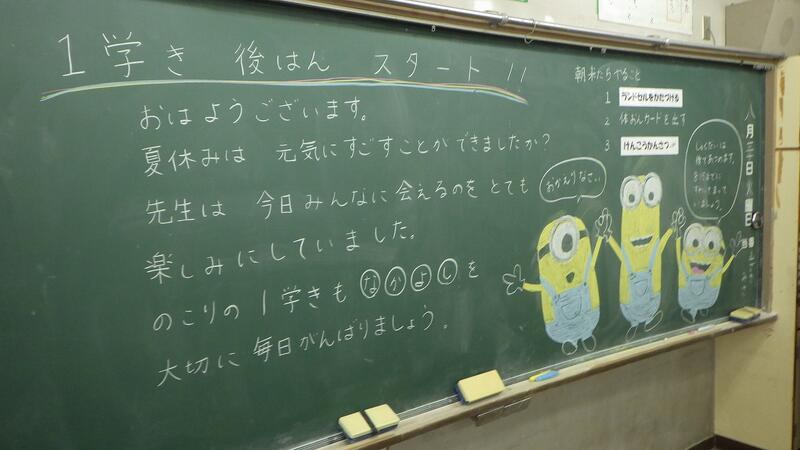 1学き 後はん スタート!!
おはようございます。
夏休みは 元気にすごすことができましたか?
先生は 今日みんなに会えるのをとても
楽しみにしていました。
のこりの1学きも なかよし を
大切に毎日がんばりましょう。
朝来たらやること
1 ランドセルをかたづける
2 体おんカードを出す
3 けんこうかんさつ
おかえりなさい
しゅくだいは
後であつめます。
すわってまって
いましょう。
八月三十日火曜日